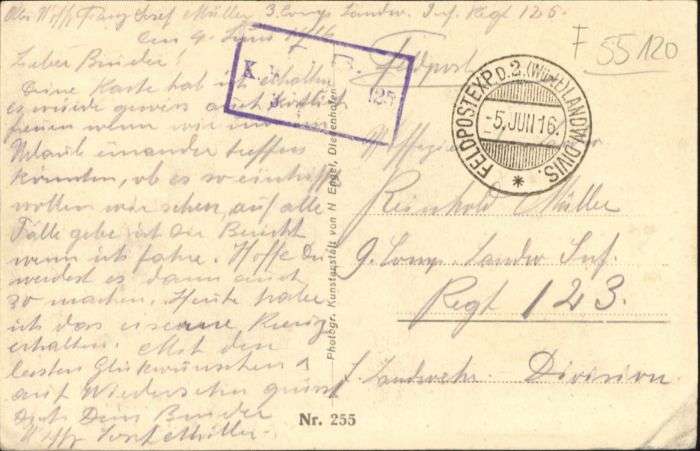 Franz Josef Müller 3. Comp. Landw. Inf. Regt 125.
den 4. Juni 1916
Lieber Bruder!
Deine Karte hab ich erhalten
es würde gewiss auch
freuen wenn wir im
Urlaub einander treffen
könnten, ob es so eintrifft
wollen wir sehen, auf alle
Fälle gebe ich Dir Bericht
wenn ich fahre. Hoffe Du
werdest es dann auch
so machen. Heute habe
ich das eiserne Kreuz
erhalten. Mit den
besten Glückwünschen
auf Wiedersehn grüsst
Dich Dein Bruder
K. W.
125
Feldpost
F 55120
FELDPOSTEXP. D. 2. (WÜRTT.) LANDW. DIVIS.
-5. JUNI 16.
Reinhold Müller
9. Comp. Landw Inf.
Regt 123.
Landwehr Division
Photogr. Kunstanstalt von N Engel, Diedenhofen
Nr. 255